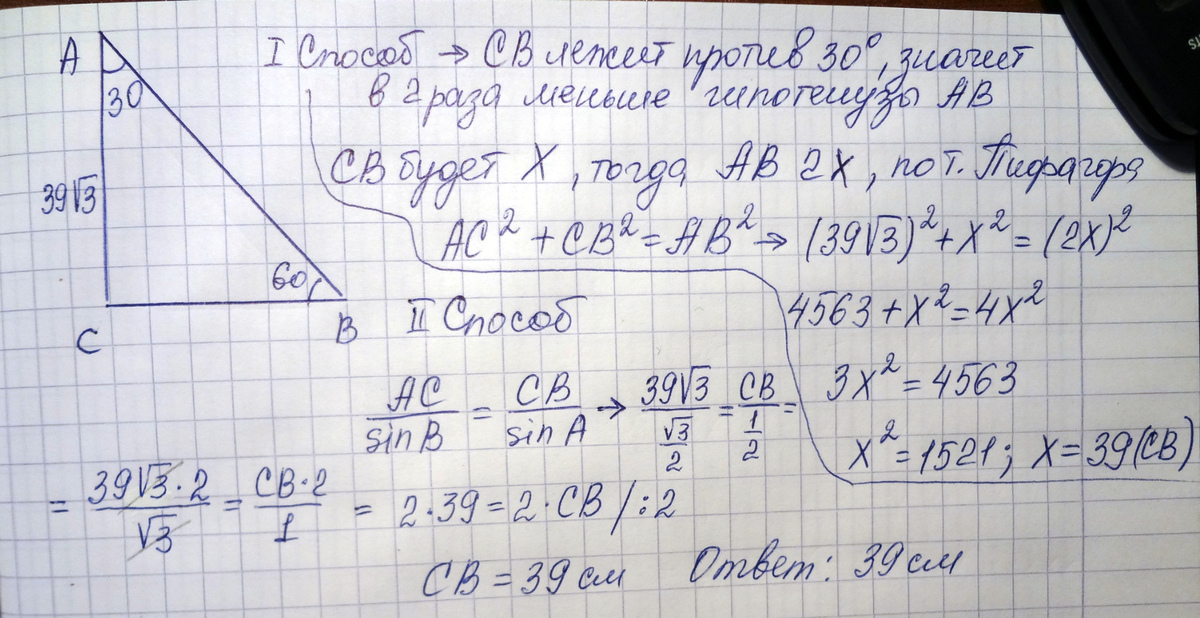 A
30
39√3
60
C
B
I Способ → CB лежит против 30°, значит
в 2 раза меньше гипотенузы AB
CB будет X, тогда AB 2X, по т. Пифагора
AC² + CB² = AB² → (39√3)² + X² = (2X)²
4563 + X² = 4X²
3X² = 4563
X² = 1521; X = 39 (CB)
II Способ
AC/sin B = CB/sin A → 39√3/(√3/2) = CB/(1/2) =
= 39√3·2/√3 = CB·2/1 = 2·39 = 2·CB /:2
CB = 39 см
Ответ: 39 см